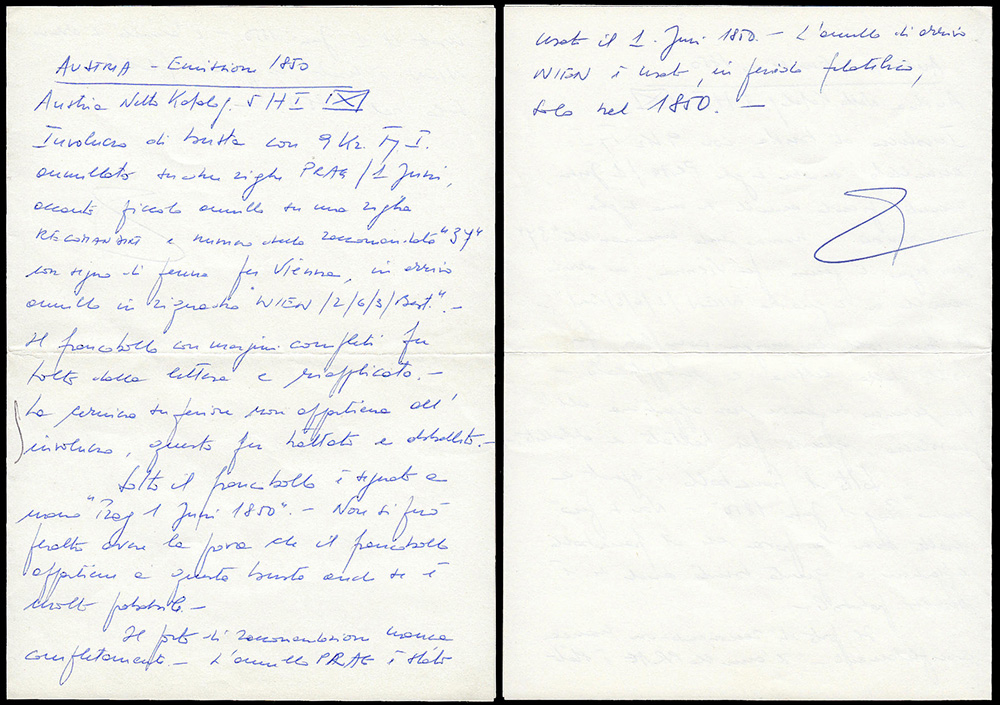 AUSTRIA - Emissione 1850
Austria Netto Katalog. 5 H I IX
Involucro di busta con 9 Kr. Ty I.
annullato su due righe PRAG / 1 Juni,
accanto piccolo annullo su una riga
RECOMANDIRT e numero della raccomandata "37"
con segno di penna per Vienna, in arrivo
annullo in riquadro "WIEN / 2/6/3/Best." -
Il francobollo con margini completi fu
tolto dalla lettera e riapplicato. -
La cerniera superiore non appartiene all'
involucro, questo fu trattato e
Sotto il francobollo è segnato a
mano "Prag 1 Juni 1850". - Non si può
peraltro avere la prova che il francobollo
appartiene a questa busta anche se è
molto probabile. -
Il porto di raccomandazione manca
completamente. - L'annullo PRAG è stato
usato il 1. Juni 1850. - L'annullo di arrivo
WIEN è usato, in periodo filatelico,
solo nel 1850. -